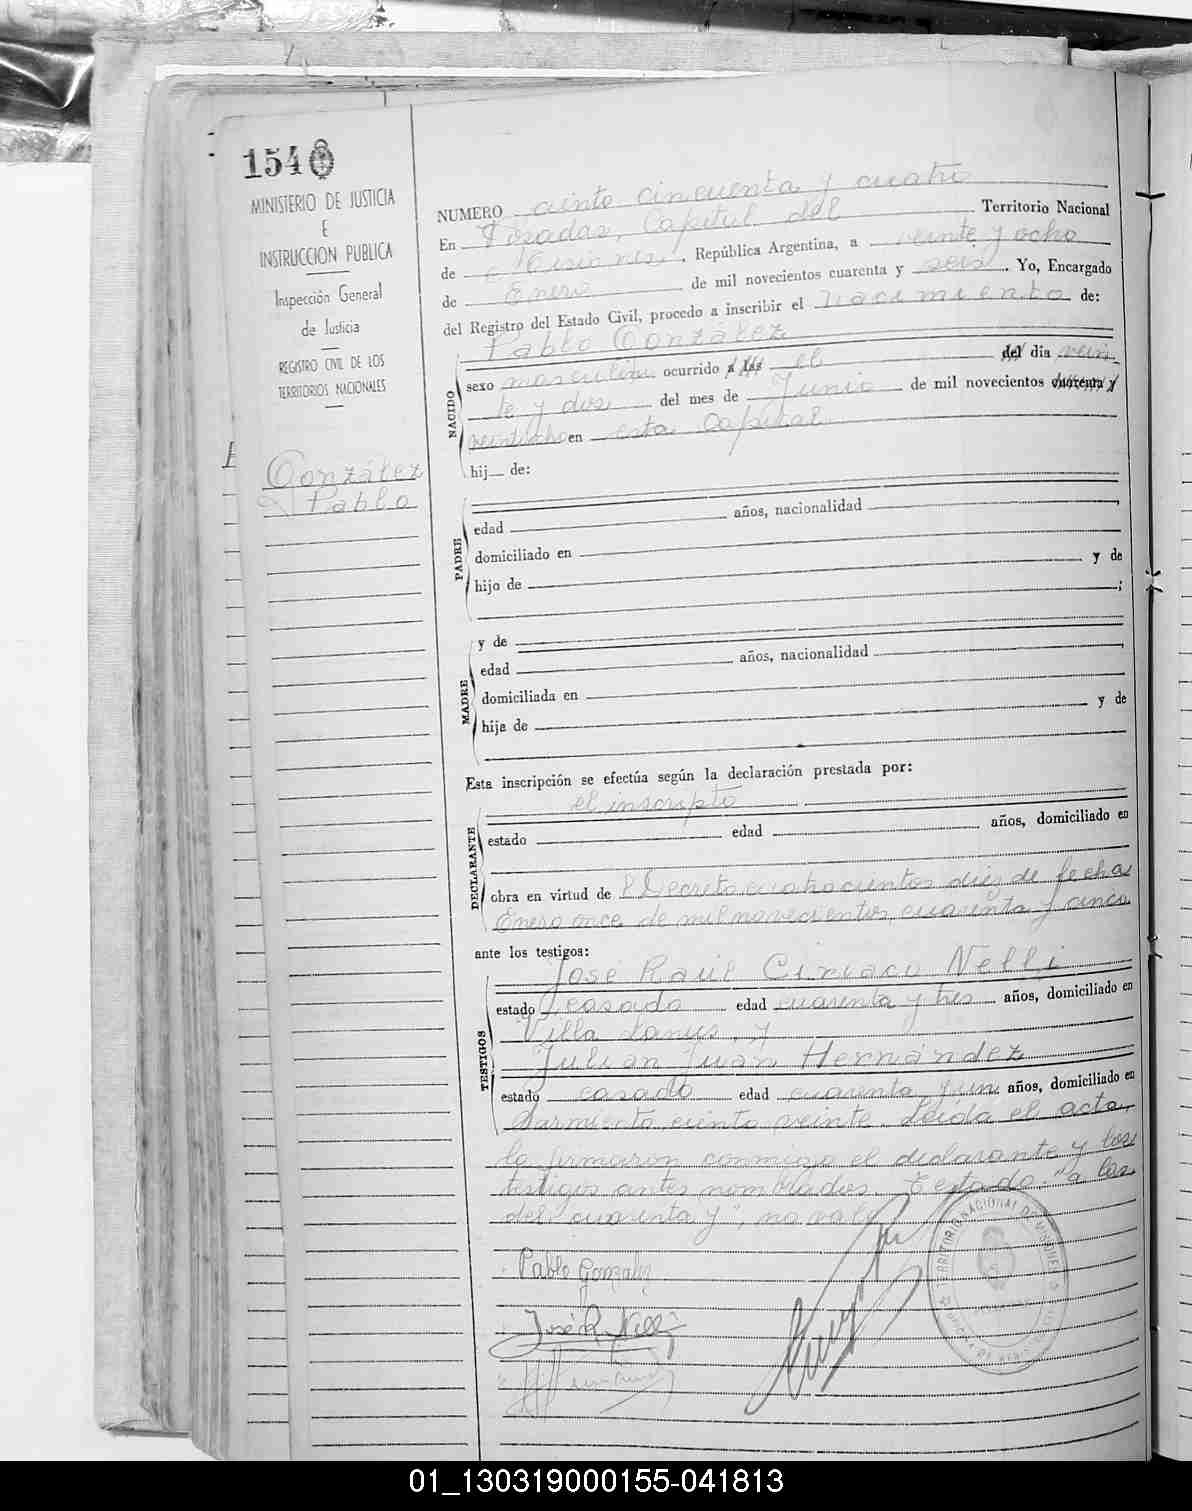 154
MINISTERIO DE JUSTICIA
E
INSTRUCCION PUBLICA
Inspección General
de Justicia
REGISTRO CIVIL DE LOS
TERRITORIOS NACIONALES
González
Pablo
NUMERO ciento cincuenta y cuatro
En Posadas, Capital del Territorio Nacional
de Misiones, República Argentina, a veinte y ocho
de Enero de mil novecientos cuarenta y seis. Yo, Encargado
del Registro del Estado Civil, procedo a inscribir el nacimiento de:
NACIDO
Pablo González
sexo masculino ocurrido a las el del dia vein
te y dos del mes de Junio de mil novecientos cuarenta y
veintiocho en esta Capital
hij de:
PADRE
edad años, nacionalidad
domiciliado en
hijo de y de
;
MADRE
y de
edad años, nacionalidad
domiciliada en
hija de y de
Esta inscripción se efectúa según la declaración prestada por:
DECLARANTE
el inscripto
estado edad años, domiciliado en
obra en virtud de l Decreto cuatrocientos diez de fecha
Enero once de mil novecientos cuarenta y cinco
ante los testigos:
TESTIGOS
José Raúl Ciriaco Nelli
estado casado edad cuarenta y tres años, domiciliado en
Villa Lanus. y
Julian Juan Hernández
estado casado edad cuarenta y un años, domiciliado en
Sarmiento ciento veinte. Leida el acta,
la firmaron conmigo el declarante y los
testigos antes nombrados. Testado: "a las
del cuarenta y", no vale
Pablo Gonzalez
José R. Nelli
TERRITORIO NACIONAL DE MISIONES
01_130319000155-041813